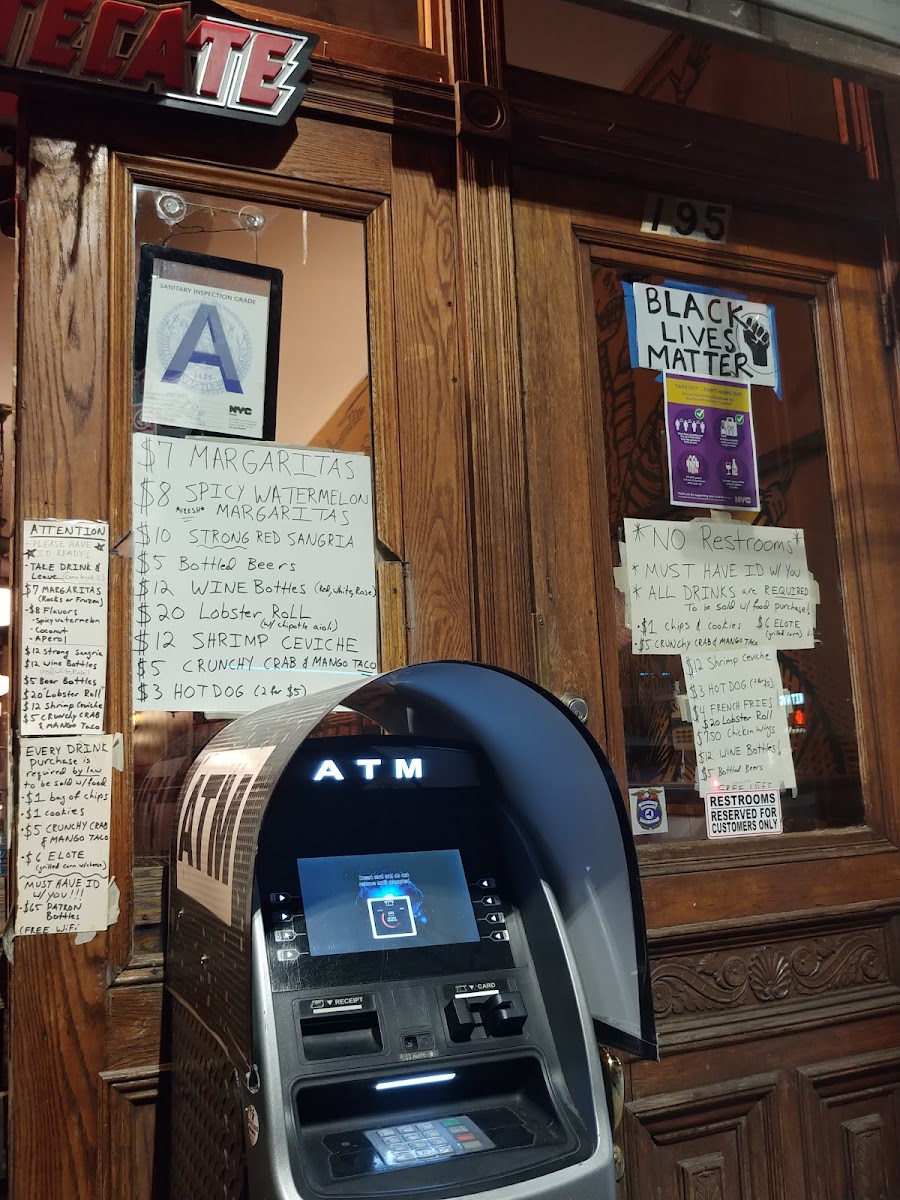 TECATE
SANITARY INSPECTION GRADE
A
NYC
$7 MARGARITAS
$8 SPICY WATERMELON
*FRESH* MARGARITAS
$10 STRONG RED SANGRIA
$5 Bottled Beers
$12 WINE Bottles (Red, White, Rose)
$20 Lobster Roll
(w/ chipotle aioli)
$12 SHRIMP CEVICHE
$5 CRUNCHY CRAB & MANGO TACO
$3 HOT DOG (2 for $5)
ATTENTION
PLEASE HAVE
ID READY!
- TAKE DRINK &
Leave...
$7 MARGARITAS
(Rocks or Frozen)
- $8 Flavors
- Spicy watermelon
- Coconut
- APerol
$12 Strong Sangria
$12 Wine Bottles
$5 Beer Bottles
$20 Lobster Roll
$12 Shrimp Ceviche
$5 CRUNCHY CRAB
& MANGO Taco
EVERY DRINK
purchase is
required by law
to be sold w/ food
- $1 bag of chips
- $1 cookies
- $5 CRUNCHY CRAB
& MANGO TACO
- $6 ELOTE
(grilled corn w/cheese)
MUST HAVE ID
W/ YOU!!!
- $65 PATRON
Bottles
(FREE WiFi
195
BLACK
LIVES
MATTER
NYC
*NO Restrooms*
* MUST HAVE ID W/ YOU
* ALL DRINKS are REQUIRED
To be sold w/ food purchase!
· $1 chips & cookies $6 ELOTE
(grilled corn)
· $5 CRUNCHY CRAB & MANGO TACO
$12 Shrimp Ceviche
$3 HOT DOG (2 for $5)
$4 FRENCH FRIES
$20 Lobster Roll
$7.50 Chicken Wings
$12 WINE Bottles!
$5 Bottled Beers
FREE WIFI
RESTROOMS
RESERVED FOR
CUSTOMERS ONLY
ATM
ATM
RECEIPT
CARD